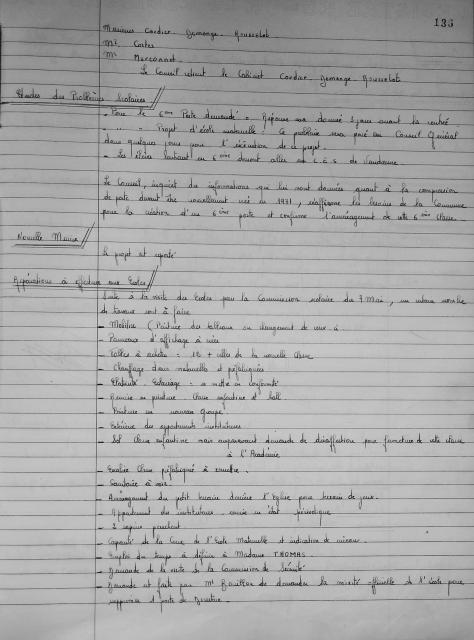 136
Messieurs Cordier - Demange - Rousselot
Mr Cortes
Mr Marconnet
Le Conseil retient le Cabinet Cordier - Demange - Rousselot
Etudes des Problèmes Scolaires
- Pour le 6ème Poste demandé - Réponse sera donnée 3 jours avant la rentrée
- " " - Projet d'école maternelle - Ce problème sera posé au Conseil Général
dans quelques jours pour l'exécution de ce projet.
- Les élèves partant en 6ème devront aller au C.E.S. de
Le Conseil, inquiet des informations qui lui sont données quant à la compression
de poste devant être nouvellement créé en 1971, réaffirme les besoins de la Commune
pour la création d'un 6ème poste et confirme l'aménagement de cette 6ème classe.
Nouvelle Mairie
Le projet est reporté
Réparations à effectuer aux Ecoles
Suite à la visite des Ecoles par la Commission scolaire du 7 Mai, un certain nombre
de travaux sont à faire
- Mobilier (Peinture des tableaux ou changement de ceux-ci
- Panneaux d'affichage à créer
- Tables à acheter : 10 + celles de la nouvelle classe
- Chauffage dans maternelles et préfabriquées
- Electricité - Eclairage - à mettre en conformité
- Remise en peinture - Classe enfantine et hall
- Peinture en nouveau groupe
- Extérieur des appartements instituteurs
- Sol Classe enfantine mais auparavant demande de désaffection pour fermeture de cette classe
à l'Académie
- Escalier Classe préfabriquée à remettre
- Sanitaire à voir
- Aménagement du petit terrain derrière l'Eglise pour terrain de jeux
- Appartement des instituteurs - remise en état périodique
- 2 sapins penchent
- Capacité de la Cuve de l'Ecole Maternelle et indication de niveau
- Emploi du temps à définir à Madame THOMAS
- Demande de la visite de la Commission de Sécurité
- Demande est faite par Mr de demander la mixité officielle de l'école pour
supprimer 1 poste de Directrice.